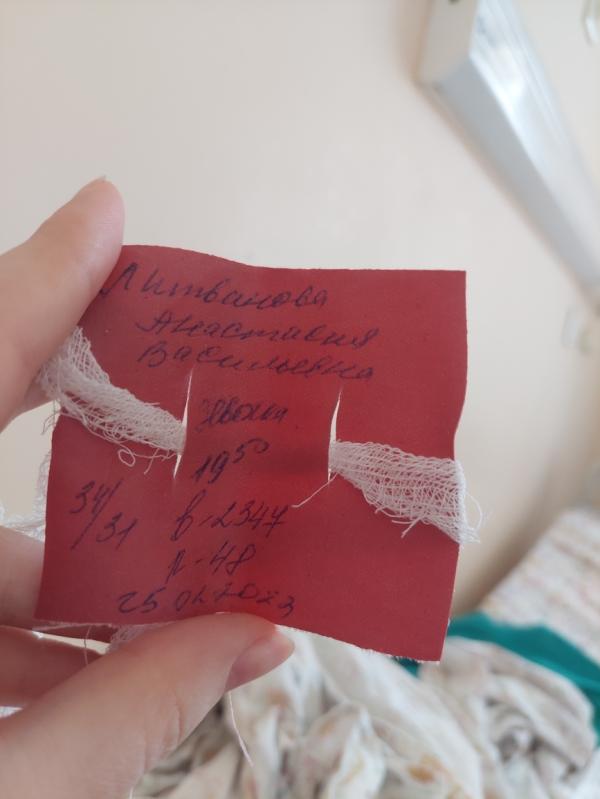 Литвинова
Анастасия
Васильевна
Живая
19⁵⁰
34/31
в-2347
р-48
25 04 2023